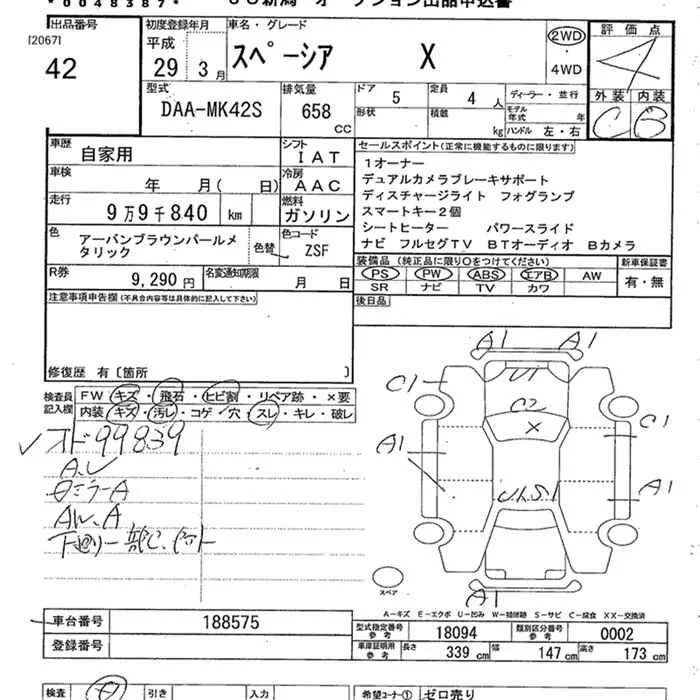 *0048387*
出品番号
[2067]
42
初度登録年月
平成
29 3月
車名・グレード
スペーシア X
2WD
・
4WD
評価点
4
外装 内装
C B
型式
DAA-MK42S
排気量
658
CC
ドア 5
形状
定員 4 人
積載 kg
ディーラー・並行
モデル年式 年
ハンドル 左・右
車歴 自家用
シフト IAT
車検 年 月( 日)
冷房 AAC
走行 9万9千840 km
燃料 ガソリン
色 アーバンブラウンパールメタリック
色替
色コード ZSF
R券 9,290円
名変通知期限 月 日
セールスポイント(正常に機能するものに限ります)
1オーナー
デュアルカメラブレーキサポート
ディスチャージライト フォグランプ
スマートキー2個
シートヒーター パワースライド
ナビ フルセグTV BTオーディオ Bカメラ
装備品 (純正品に限り〇をつけてください)
PS PW ABS エアB AW
SR ナビ TV カワ
新車保証書
有・無
後日品
注意事項申告欄(不具合内容等は具体的に記入して下さい)
修復歴 有〔箇所 〕
検査員記入欄
FW キズ・飛石・ヒビ割・リペア跡・×要
内装 キズ・汚レ・コゲ・穴・スレ・キレ・破レ
99839
A.U
AW.A
A1 A1
U1
C1
C2
X
C1
A1
A1
A1
スペア
A-キズ E-エクボ U-凹み W-補修跡 S-サビ C-腐食 XX-交換済
車台番号 188575
登録番号
型式指定番号参考 18094
類別区分番号参考 0002
車庫証明用参考 長さ 339cm 幅 147cm 高さ 173cm
検査
引き
入力
希望コーナー① ゼロ売り